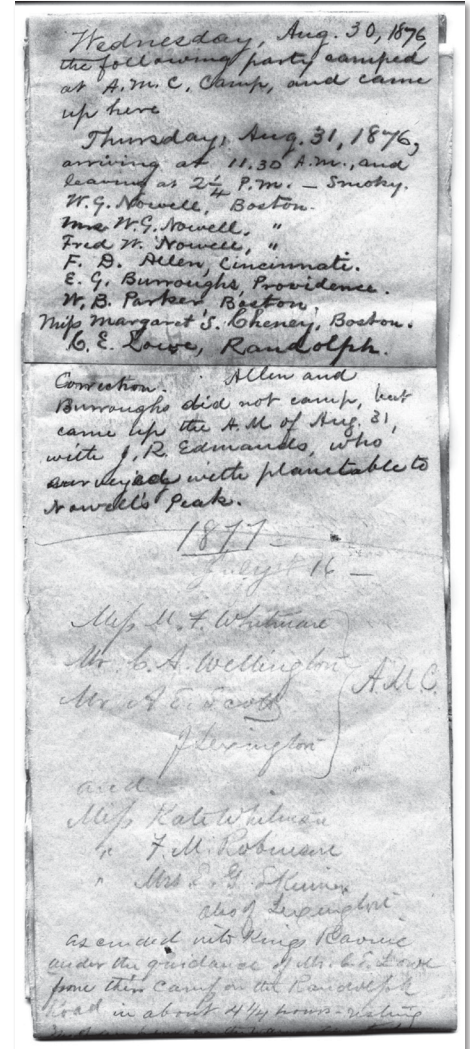 Wednesday, Aug. 30, 1876,
the following party camped
at A.M.C. Camp, and came
up here
Thursday, Aug. 31, 1876,
arriving at 11.30 A.M., and
leaving at 2¼ P.M. — Smoky.
W. G. Nowell, Boston.
Mrs W. G. Nowell, "
Fred W. Nowell, "
F. D. Allen, Cincinnati.
E. G. Burroughs, Providence.
W. B. Parker, Boston,
Miss Margaret S. Cheney, Boston.
C. E. Lowe, Randolph.
Correction. Allen and
Burroughs did not camp, but
came up the A.M of Aug. 31,
with J. R. Edmands, who
surveyed with planetable to
Nowell's Peak.
1877 —
July 16 —
Miss M. F. Whitman
Mr. C. A. Wellington
Mr A E. Scott
A.M.C.
of Lexington
and
Miss Kate Whitman
" F. M. Robinson
" Mrs G. Skinner
also of Lexington
ascended into Kings Ravine
under the guidance of Mr. C. E. Lowe
from their Camp on the Randolph
road in about 4¼ hours - resting